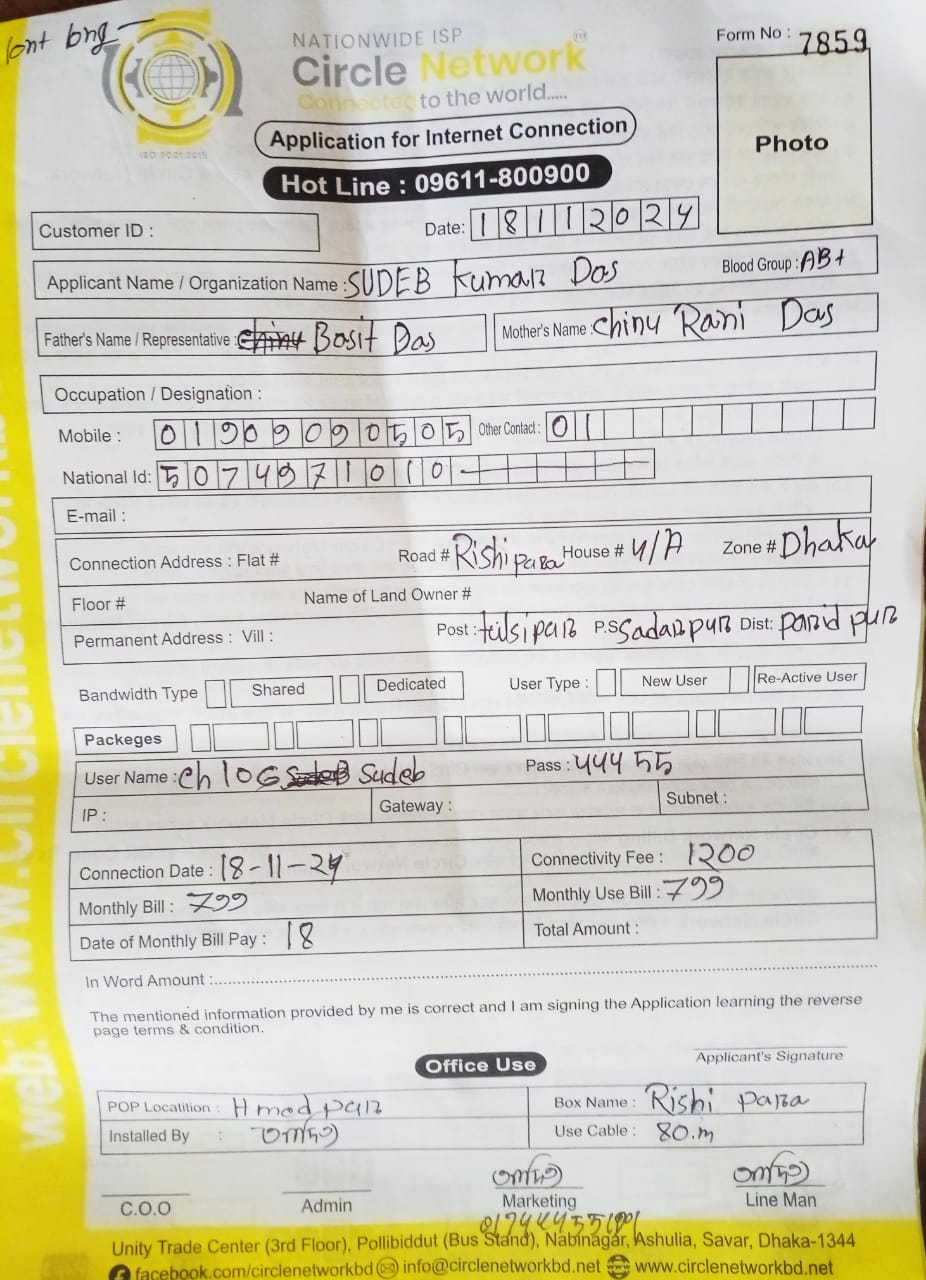 NATIONWIDE ISP
Circle Network
Connected to the world.....
ISO 9001:2015
Form No : 7859
Photo
Application for Internet Connection
Hot Line : 09611-800900
Customer ID :
Date: 18112024
Applicant Name / Organization Name : SUDEB Kumar Das Blood Group : AB+
Father's Name / Representative : Basit Das Mother's Name : Chinu Rani Das
Occupation / Designation :
Mobile : 01909090505 Other Contact : 01
National Id: 5074971010
E-mail :
Connection Address : Flat # Road # Rishi para House # 4/A Zone # Dhaka
Floor # Name of Land Owner #
Permanent Address : Vill : Post : tulsipar P.S Sadarpur Dist: parid pur
Bandwidth Type Shared Dedicated User Type : New User Re-Active User
Packeges
User Name : Ch10G Sudeb Pass : 44455
IP : Gateway : Subnet :
Connection Date : 18-11-24 Connectivity Fee : 1200
Monthly Bill : 799 Monthly Use Bill : 799
Date of Monthly Bill Pay : 18 Total Amount :
In Word Amount :
The mentioned information provided by me is correct and I am signing the Application learning the reverse
page terms & condition.
Applicant's Signature
Office Use
POP Locatition : Box Name : Rishi para
Installed By : Use Cable : 80.m
C.O.O Admin Marketing Line Man
Unity Trade Center (3rd Floor), Pollibiddut (Bus Stand), Nabinagar, Ashulia, Savar, Dhaka-1344
facebook.com/circlenetworkbd info@circlenetworkbd.net www.circlenetworkbd.net